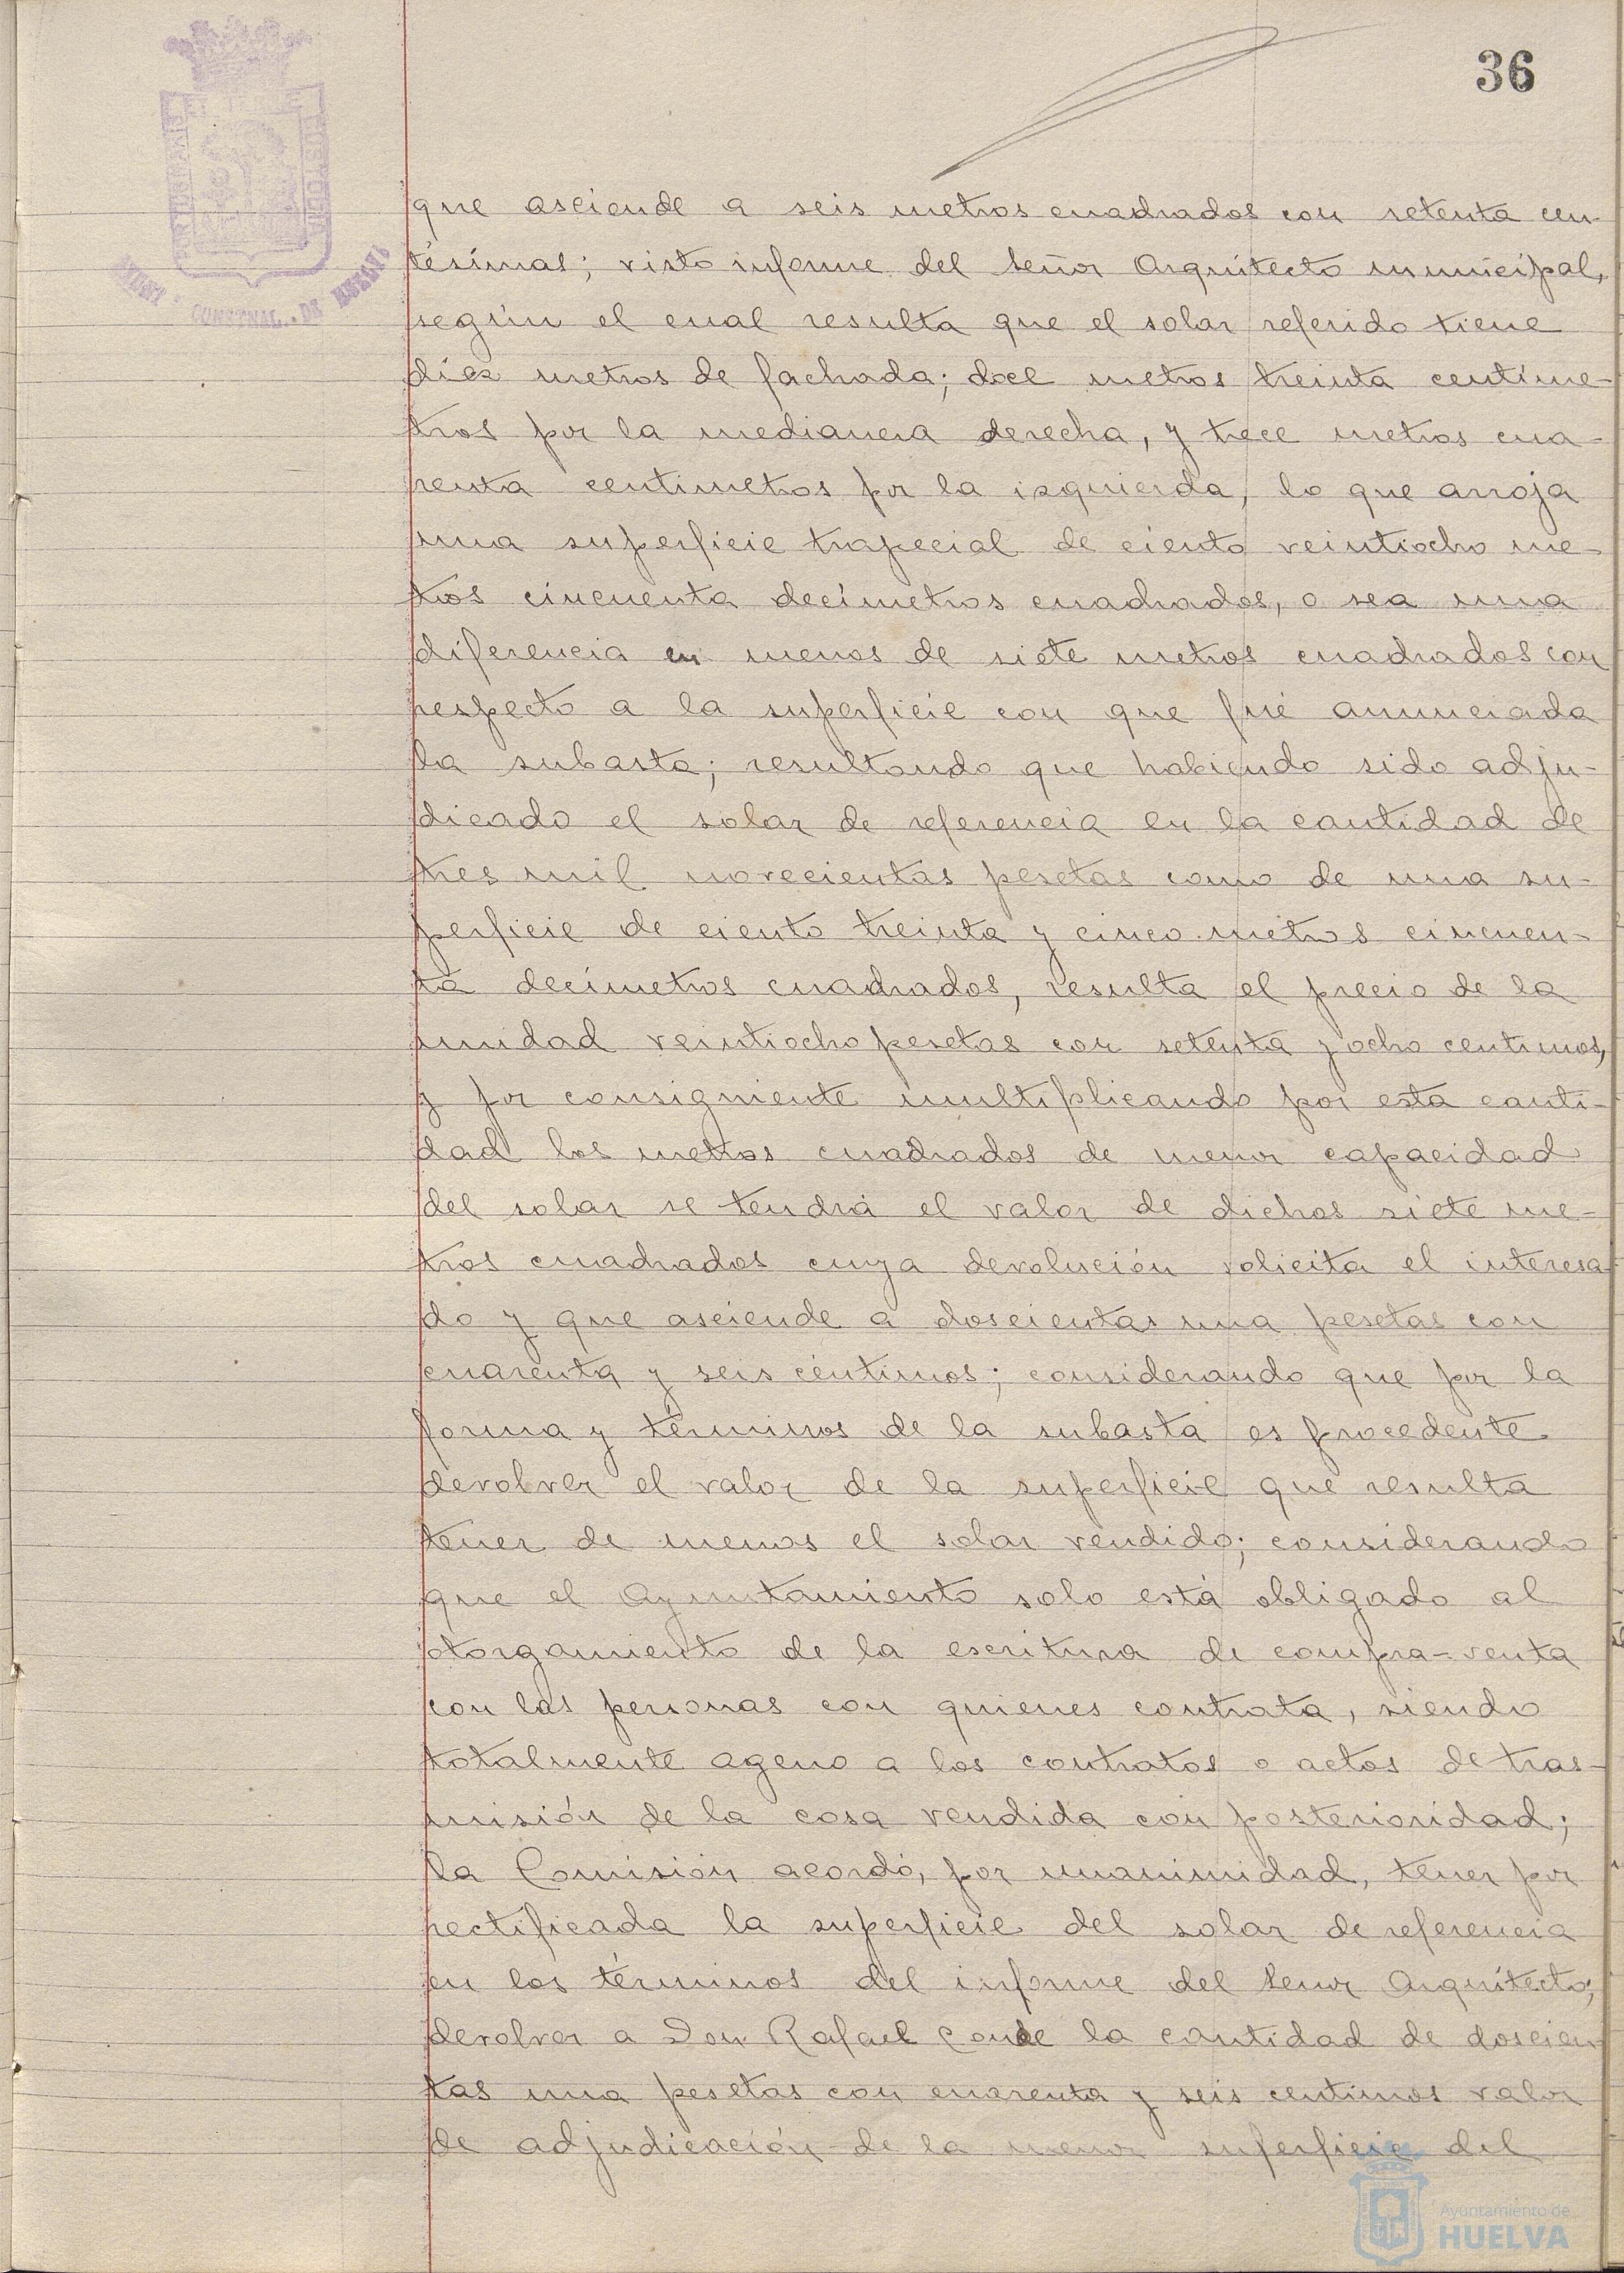 36
que asciende a seis metros cuadrados con setenta cen-
tésimas; visto informe del Señor Arquitecto municipal,
según el cual resulta que el solar referido tiene
diez metros de fachada; doce metros treinta centíme-
tros por la medianera derecha, y trece metros cua-
renta centimetros por la izquierda, lo que arroja
una superficie trapecial de ciento veintiocho me-
tros cincuenta decímetros cuadrados, o sea una
diferencia en menos de siete metros cuadrados con
respecto a la superficie con que fué anunciada
la subasta; resultando que habiendo sido adju-
dicado el solar de referencia en la cantidad de
tres mil novecientas pesetas como de una su-
perficie de ciento treinta y cinco metros cincuen-
ta decímetros cuadrados, resulta el precio de la
unidad veintiocho pesetas con setenta y ocho centimos,
y por consigniente multiplicando por esta canti-
dad los metros cuadrados de menor capacidad
del solar se tendrá el valor de dichos siete me-
tros cuadrados cuya devolución solicita el interesa-
do y que asciende a doscientas una pesetas con
cuarenta y seis céntimos; considerando que por la
forma y términos de la subasta es procedente
devolver el valor de la superficie que resulta
tener de menos el solar vendido; considerando
que el Ayuntamiento solo está obligado al
otorgamiento de la escritura de compra-venta
con las personas con quienes contrata, siendo
totalmente ageno a los contratos o actos de tras-
misión de la cosa vendida con posterioridad;
la Comisión acordó, por unanimidad, tener por
rectificada la superficie del solar de referencia
en los términos del informe del Senor Arquitecto;
devolver a Don Rafael Conde la cantidad de doscien-
tas una pesetas con cuarenta y seis centimos valor
de adjudicación de la menor superficie del
CONSTNAL. DE HUELVA
Ayuntamiento de
HUELVA